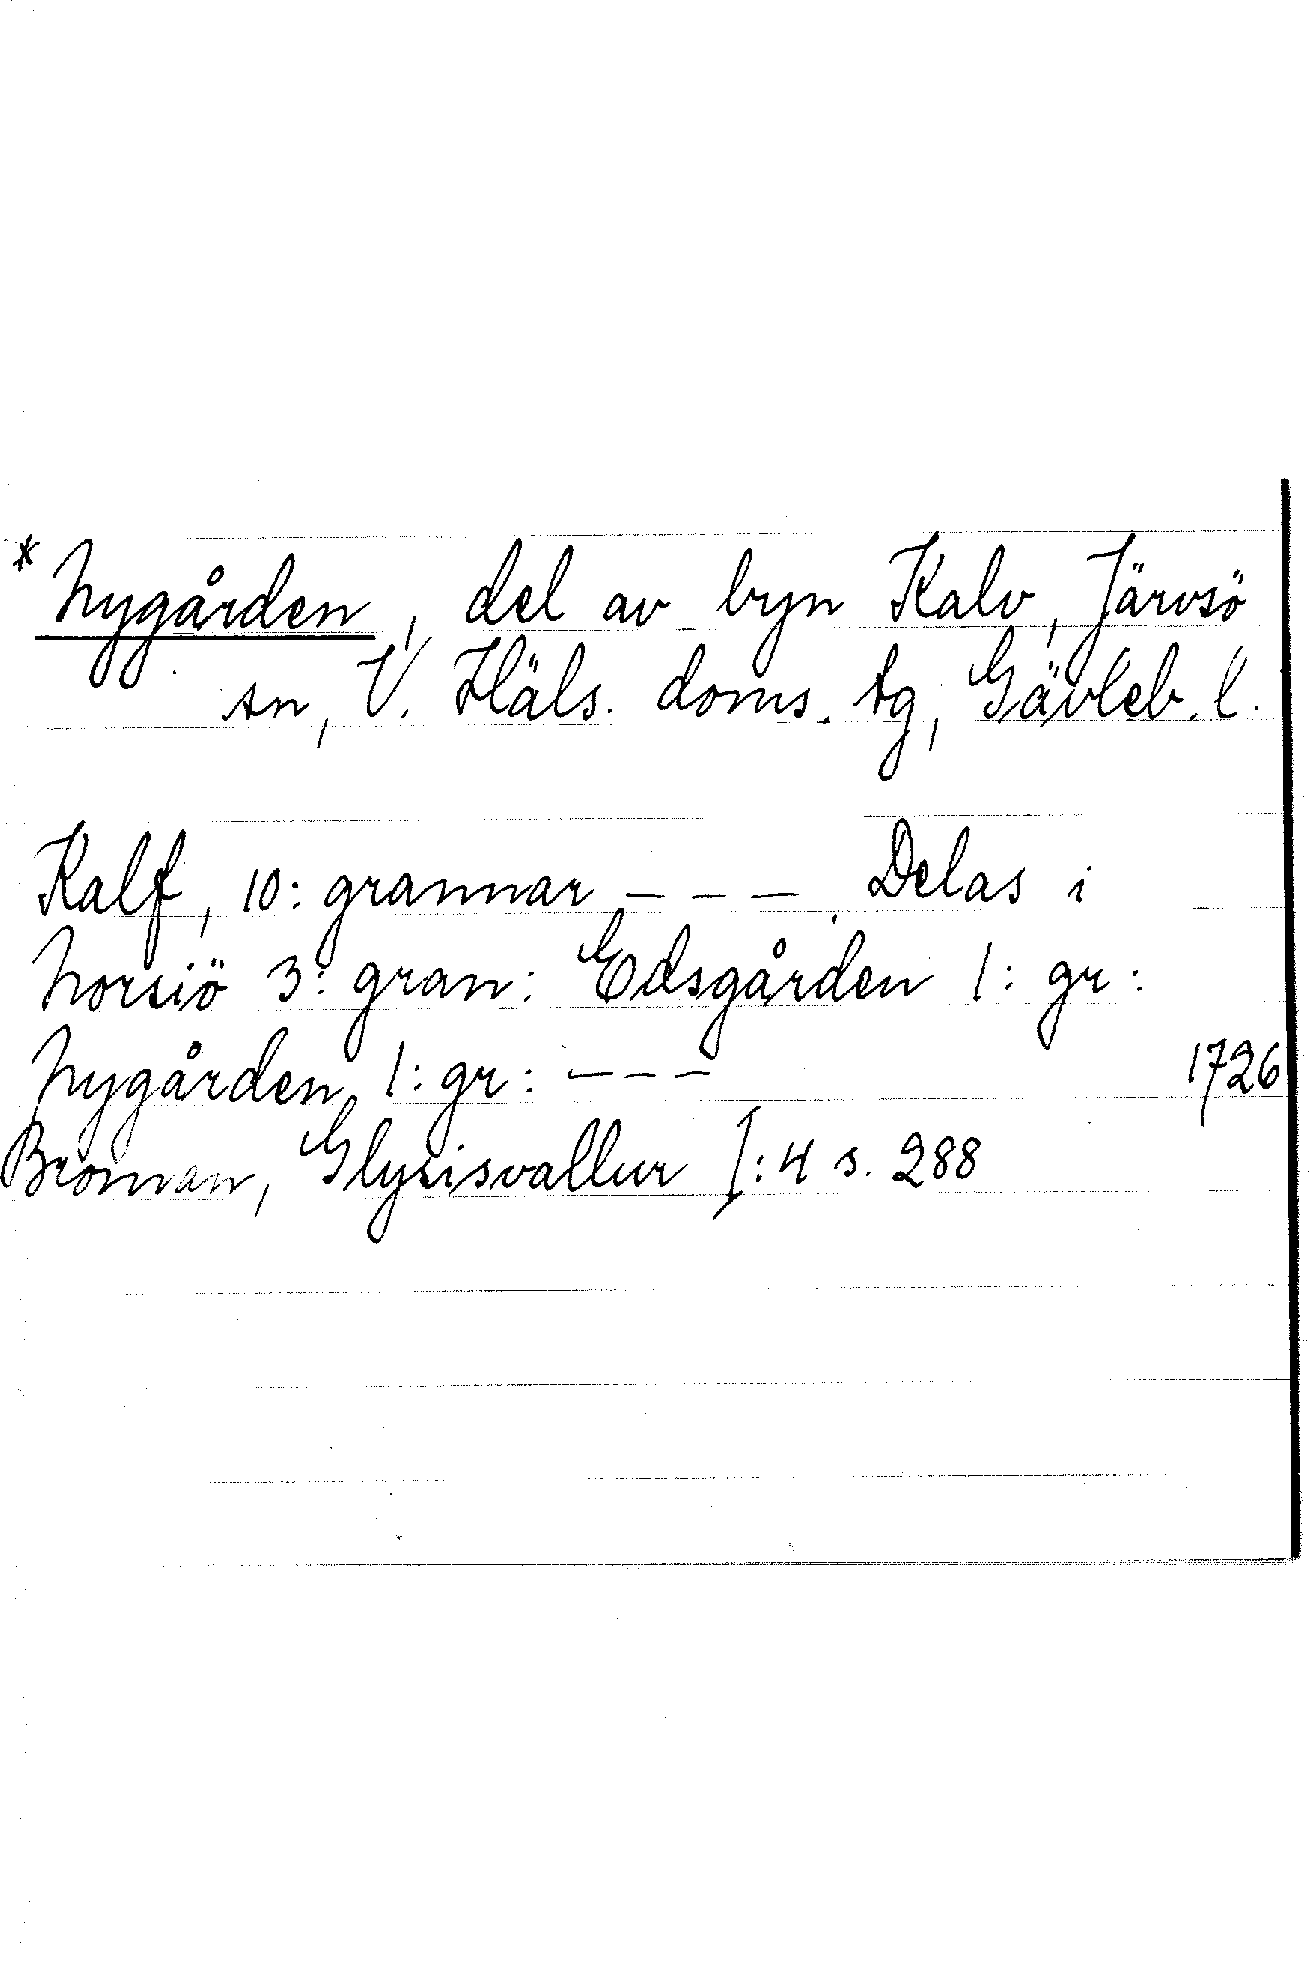 * Nygården, del av byn Kalv, Järvsö
sn, V. Häls. doms. tg, Gävleb. l.
Kalf, 10: grannar – – –. Delas i
Norsiö 3: gran: Edsgården 1: gr:
Nygården 1: gr: – – – 1726
Broman, Glysisvallur I: 4 s. 288